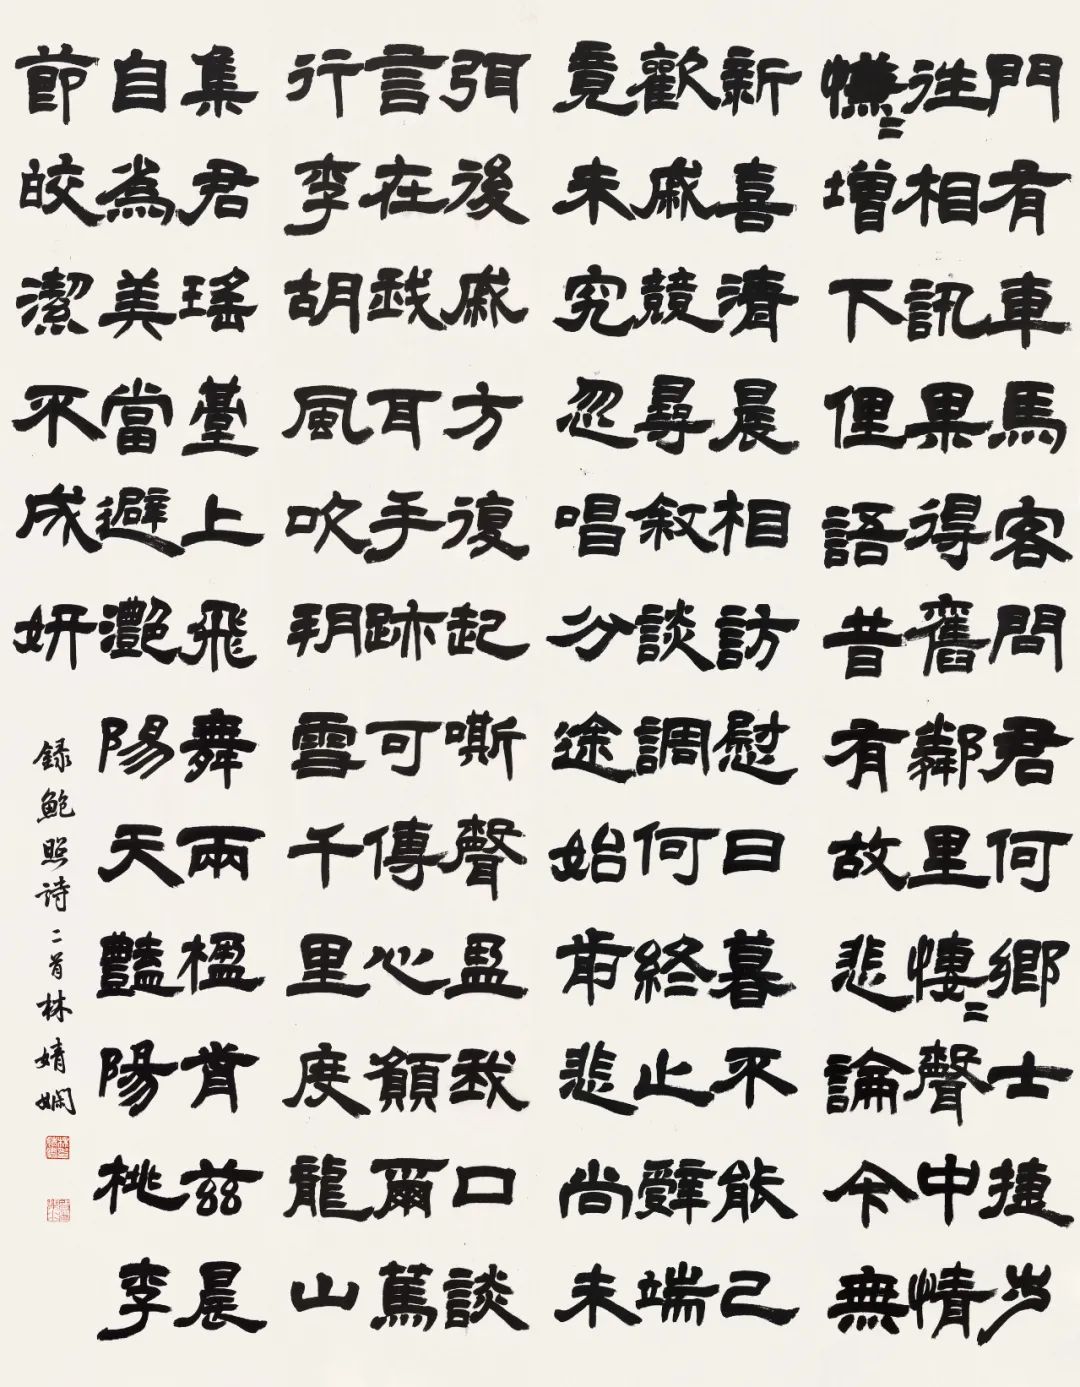 門有車馬客問君何鄉士捷步
往相訊果得舊鄰里悽〻聲中情
慊〻增下俚語昔有故悲論今無
新喜清晨相訪慰日暮不能已
歡戚競尋敘談調何終止辭端
竟未究忽唱分途始前悲尚未
弭後戚方復起嘶聲盈我口談
言在我耳手跡可傳心願爾篤
行李胡風吹朔雪千里度龍山
集君瑤臺上飛舞兩楹前茲晨
自為美當避灩陽天豔陽桃李
節皎潔不成妍
録鮑照诗二首林婧嫻